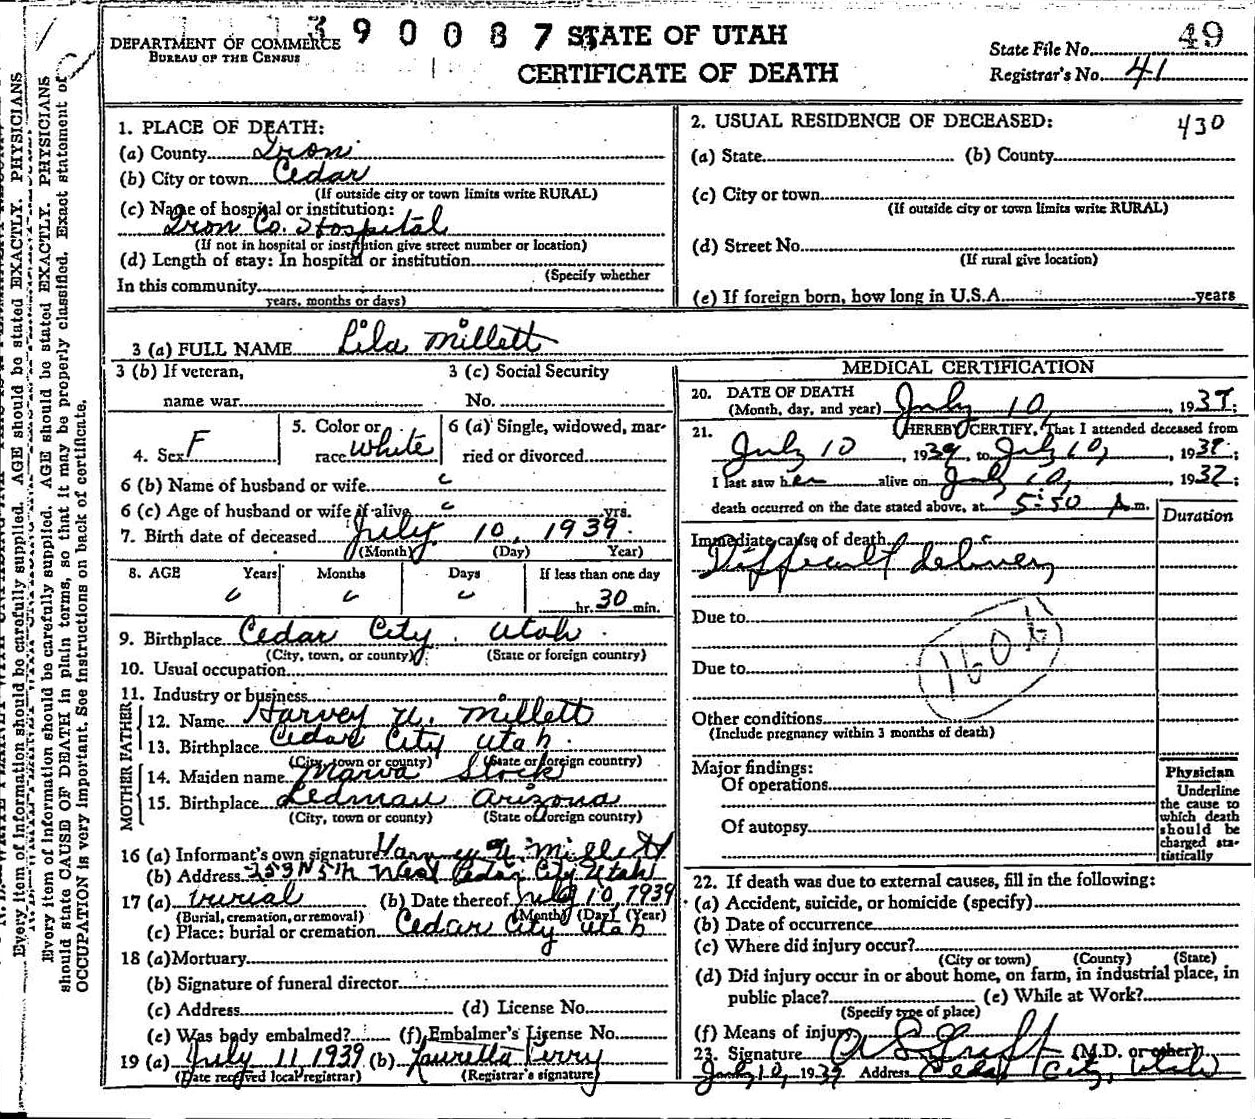 390087 STATE OF UTAH
49
DEPARTMENT OF COMMERCE
BUREAU OF THE CENSUS
CERTIFICATE OF DEATH
State File No.
Registrar's No. 41
1. PLACE OF DEATH:
(a) County Iron
(b) City or town Cedar
(If outside city or town limits write RURAL)
(c) Name of hospital or institution:
Iron Co. Hospital
(If not in hospital or institution give street number or location)
(d) Length of stay: In hospital or institution
(Specify whether
In this community
years, months or days)
2. USUAL RESIDENCE OF DECEASED: 430
(a) State (b) County
(c) City or town
(If outside city or town limits write RURAL)
(d) Street No.
(If rural give location)
(e) If foreign born, how long in U.S.A. years
3 (a) FULL NAME Lila Millett
3 (b) If veteran, 3 (c) Social Security
name war No.
4. Sex F 5. Color or race White 6 (a) Single, widowed, married or divorced
6 (b) Name of husband or wife
6 (c) Age of husband or wife if alive yrs.
7. Birth date of deceased July 10, 1939
(Month) (Day) Year)
8. AGE Years Months Days If less than one day
hr. 30 min.
9. Birthplace Cedar City, Utah
(City, town, or county) (State or foreign country)
10. Usual occupation
11. Industry or business
FATHER
12. Name Harvey U. Millett
13. Birthplace Cedar City Utah
(City, town or county) (State or foreign country)
MOTHER
14. Maiden name Marva Stock
15. Birthplace Arizona
(City, town or county) (State or foreign country)
16 (a) Informant's own signature Harvey U. Millett
(b) Address 253 N 5th West Cedar City Utah
17 (a) burial (b) Date thereof July 10, 1939
(Burial, cremation, or removal) (Month) (Day) (Year)
(c) Place: burial or cremation Cedar City Utah
18 (a) Mortuary
(b) Signature of funeral director
(c) Address (d) License No.
(e) Was body embalmed? (f) Embalmer's License No.
19 (a) July 11 1939 (b) Lauretta Perry
(Date received local registrar) (Registrar's signature)
MEDICAL CERTIFICATION
20. DATE OF DEATH
(Month, day, and year) July 10, 1939;
21. I HEREBY CERTIFY, That I attended deceased from
July 10, 1939, to July 10, 1939;
I last saw her alive on July 10, 1939;
death occurred on the date stated above, at 5:50 A m.
Duration
Immediate cause of death
Difficult delivery
Due to
160
Due to
Other conditions
(Include pregnancy within 3 months of death)
Major findings:
Of operations
Of autopsy
Physician
Underline
the cause to
which death
should be
charged sta-
tistically
22. If death was due to external causes, fill in the following:
(a) Accident, suicide, or homicide (specify)
(b) Date of occurrence
(c) Where did injury occur?
(City or town) (County) (State)
(d) Did injury occur in or about home, on farm, in industrial place, in
public place? (e) While at Work?
(Specify type of place)
(f) Means of injury
23. Signature (M.D. or other)
July 10, 1939 Address Cedar City, Utah
Every item of information should be carefully supplied. AGE should be stated EXACTLY. PHYSICIANS
Every item of information should be carefully supplied. AGE should be stated EXACTLY. PHYSICIANS
should state CAUSE OF DEATH in plain terms, so that it may be properly classified. Exact statement of
OCCUPATION is very important. See instructions on back of certificate.